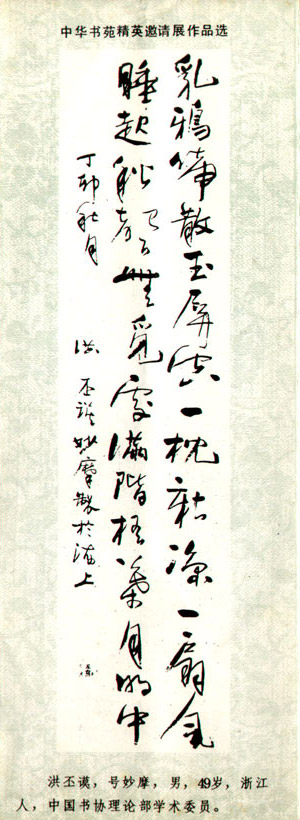 中华书苑精英邀请展作品选
乳鴉啼散玉屏空一枕新涼一扇風
睡起秋聲無覓處滿階梧葉月明中
丁卯秋月 洪丕謨妙摩製於海上
洪丕谟，号妙摩，男，49岁，浙江
人，中国书协理论部学术委员。